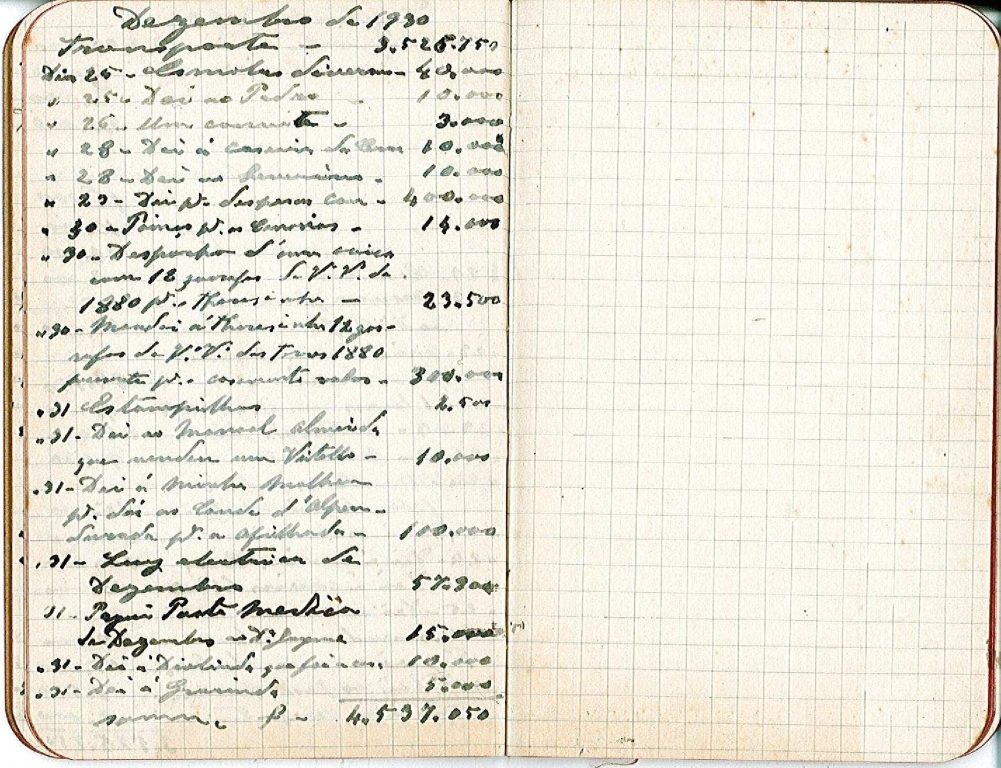 Dezembro de 1930
Transporte - 3.526.750
Dia 25 - Esmolas diversas - 40.000
" 25 - Dei ao Pedro - 10.000
" 26 - Um - 3.000
" 28 - Dei á caseira da 10.000
" 28 - Dei ao - 10.000
" 29 - Dei pª. despesas - 400.000
" 30 - pª. - 14.000
" 30 - Despacho d'uma caixa
com 18 garrafas de V. V. de
1880 pª. Theresinha - 23.500
" 30 - Mandei á Theresinha 12 gar-
rafas de V. V. das 1880
presente pª. o casamento valor - 300.000
" 31 Estampilhas 2.500
" 31 - Dei ao Manoel Almeida
que vendeu um Vitello - 10.000
" 31 - Dei á Minha Mulher
pª. dar ao Conde d'Alpen-
durada pª. a afilhada - 100.000
" 31 - Luz electrica de
Dezembro 57.300
31 - Paguei Parte
de Dezembro ao Dr. 15.000
" 31 - Dei á Deolinda 10.000
" 31 - Dei á 5.000
somma $ - 4.537.050